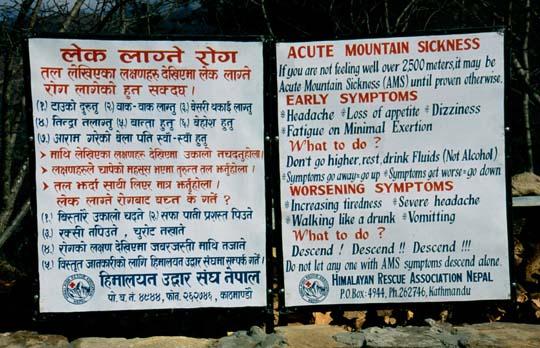 लेक लाग्ने रोग
तल लेखिएका लक्षणहरु देखिएमा लेक लाग्ने
रोग लागेको हुन सक्दछ।
(१) टाउको दुख्नु (२) वाक-वाक लाग्नु (३) बेसरी थकाई लाग्नु
(४) निन्द्रा नलाग्नु (५) वान्ता हुनु (६) बेहोश हुनु
(७) आराम गरेको बेला पनि स्वाँ-स्वाँ हुनु
> माथि लेखिएका लक्षणहरु देखिएमा उकालो नचढ्नुहोला।
> लक्षणहरुले चापेको महसुस भएमा तुरुन्त तल झर्नुहोला।
> तल झर्दा साथी लिएर मात्र झर्नुहोला।
लेक लाग्ने रोगबाट बच्न के गर्ने?
(१) बिस्तारै उकालो चढ्ने (२) सफा पानी प्रशस्त पिउने
(३) रक्सी नपिउने, चुरोट नखाने
(४) रोगको लक्षण देखिएमा जबरजस्ती माथि नजाने
(५) विस्तृत जानकारीको लागि हिमालयन उद्धार संघमा सम्पर्क गर्ने।
हिमालयन उद्धार संघ नेपाल
पो. ब. नं. ४९४४, फोन. २६२७४६, काठमाण्डौ
ACUTE MOUNTAIN SICKNESS
If you are not feeling well over 2500 meters, it may be
Acute Mountain Sickness (AMS) until proven otherwise.
EARLY SYMPTOMS
*Headache *Loss of appetite *Dizziness
*Fatigue on Minimal Exertion
What to do ?
Don't go higher, rest, drink Fluids (Not Alcohol)
*Symptoms go away=go up *Symptoms get worse=go down
WORSENING SYMPTOMS
*Increasing tiredness *Severe headache
*Walking like a drunk *Vomitting
What to do ?
Descend ! Descend !! Descend !!!
Do not let any one with AMS symptoms descend alone.
HIMALAYAN RESCUE ASSOCIATION NEPAL
P.O.Box: 4944, Ph. 262746, Kathmandu